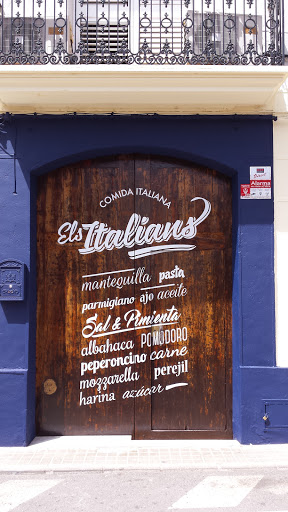 COMIDA ITALIANA
Els Italians
mantequilla pasta
parmigiano ajo aceite
Sal & Pimienta
albahaca POMODORO
peperoncino carne
mozzarella perejil
harina azúcar
Alarma